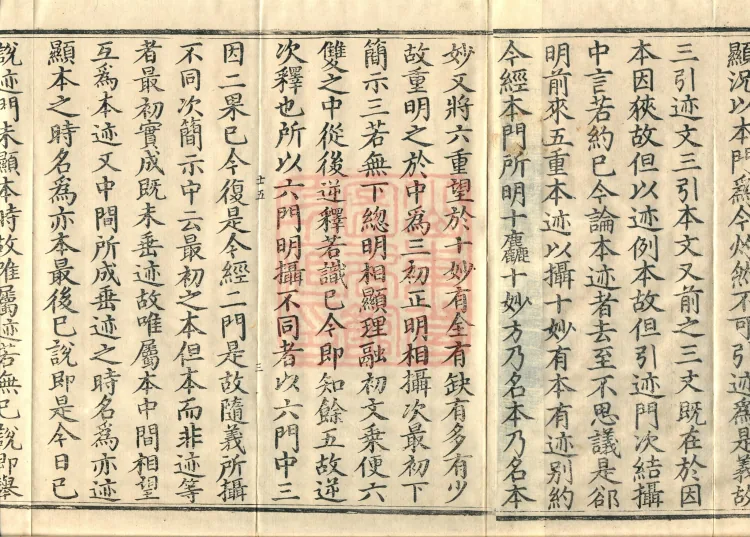 顯況以本門為今灼然不可引迹為是義故
三引迹文三引本文又前之三文既在於因
本因狹故但以迹例本故但引迹門次結攝
中言若約已今論本迹者去至不思議是卻
明前來五重本迹以攝十妙有本有迹別約
今經本門所明十麤十妙方乃名本乃名本
妙又將六重望於十妙有全有缺有多有少
故重明之於中為三初正明相攝次最初下
簡示三若無下總明相顯理融初文乗便六
雙之中從後逆釋若識已今即知餘五故逆
次釋也所以六門明攝不同者以六門中三
士五
三
因二果已今復是今經二門是故隨義所攝
不同次簡示中云最初之本但本而非迹等
者最初實成既未垂迹故唯屬本中間相望
互為本迹又中間所成垂迹之時名為亦迹
顯本之時名為亦本最後已說即是今日已
說迹門未顯本時故唯屬迹若無已說即舉